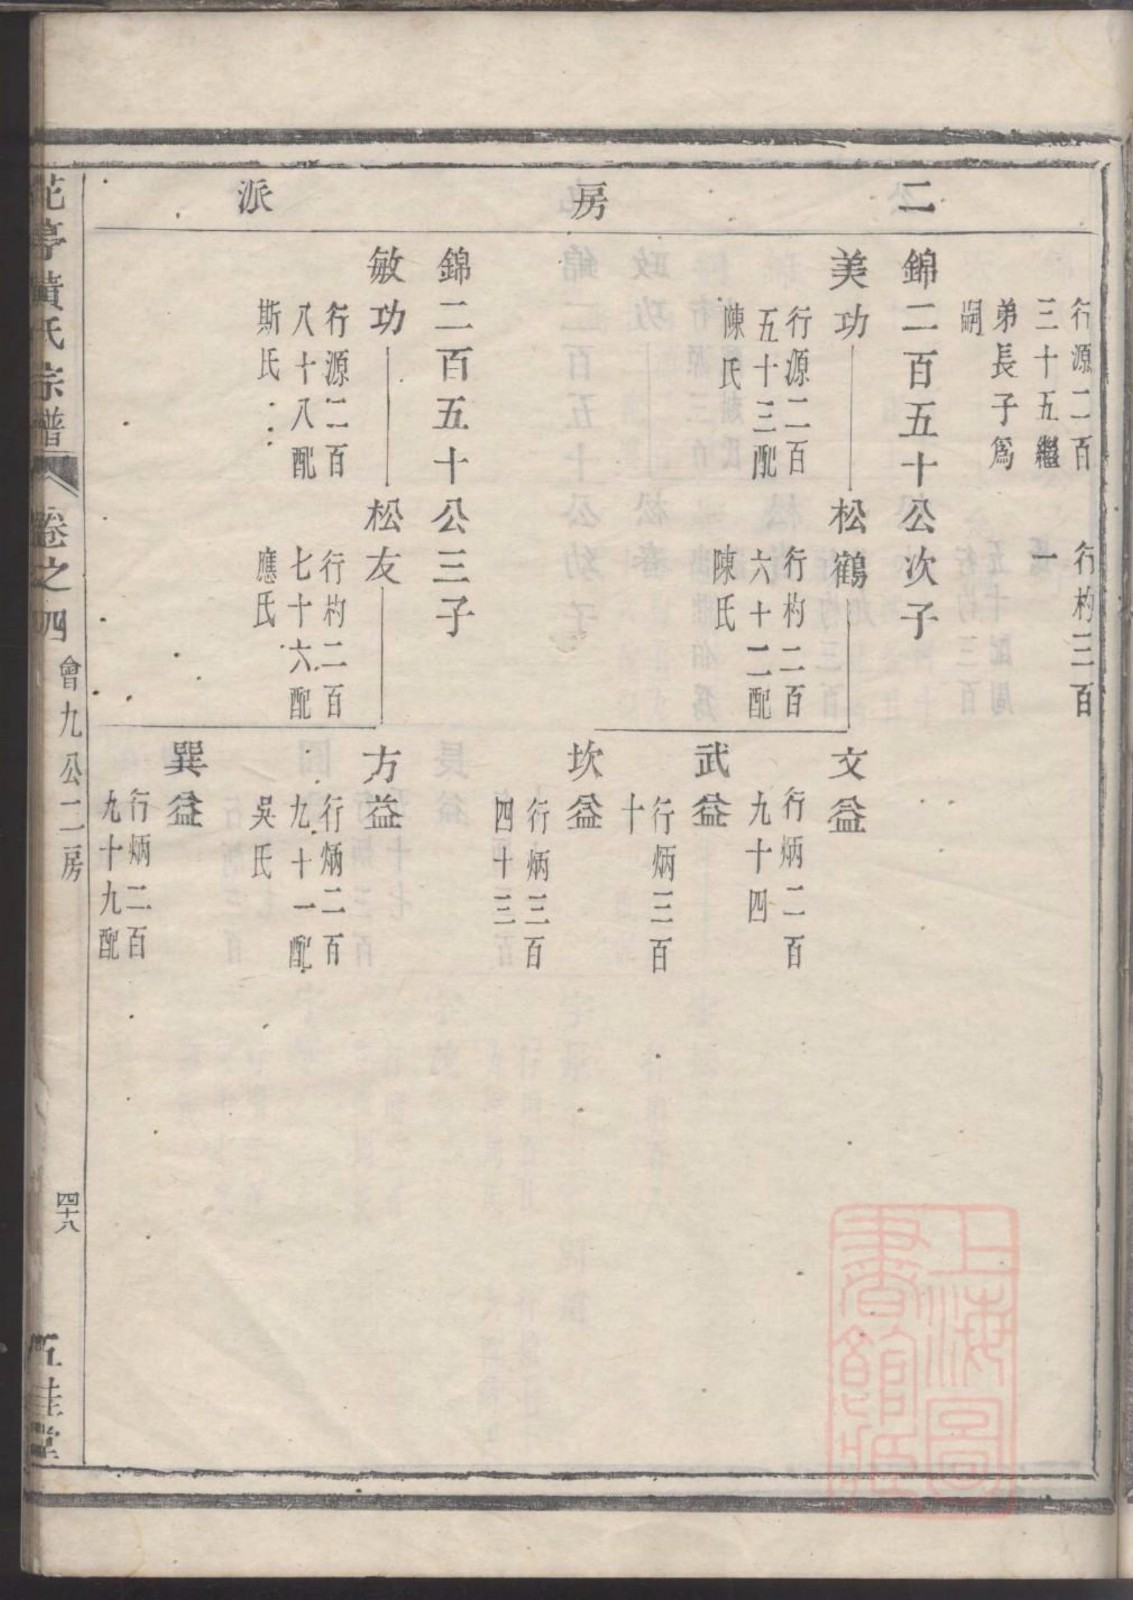 二房派
行源二百
三十五繼
弟長子爲
嗣
行杓三百
一
錦二百五十公次子
美功
行源二百
五十三配
陳氏
松鶴
行杓二百
六十二配
陳氏
文益
行炳二百
九十四
武益
行炳三百
十
坎益
行炳三百
四十三
錦二百五十公三子
敏功
行源二百
八十八配
斯氏
松友
行杓二百
七十六配
應氏
方益
行炳二百
九十一配
吳氏
巽益
行炳二百
九十九配
花亭黃氏宗譜
卷之四
會九公二房
四十八
五桂堂
上海圖
書館藏